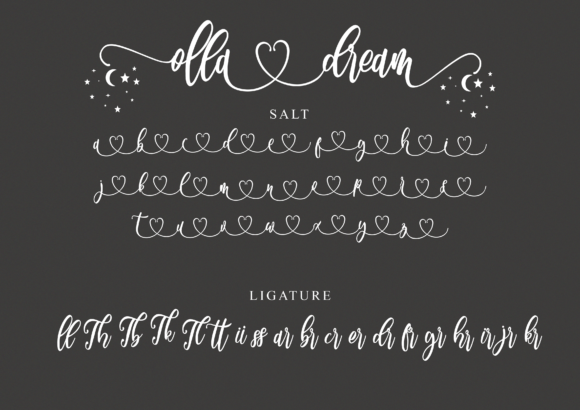 olla dream
SALT
a b c d e f g h i
j k l m n o p q r s
t u v w x y z
LIGATURE
ll Th Tb Tk Tl tt ii ss ar br cr er dr fr gr hr ir jr kr